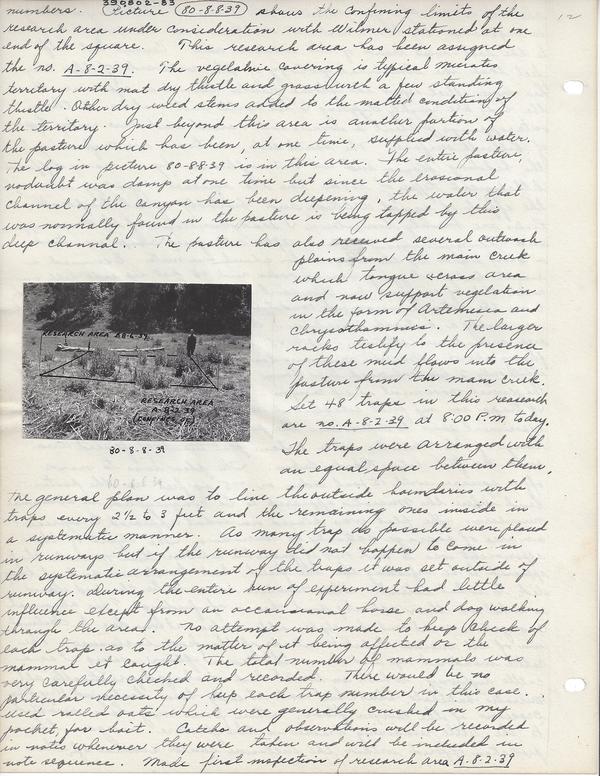 339802-83
12
numbers. Picture (80-8-8-39) shows the confining limits of the
research area under consideration with Wilmer stationed at one
end of the square. This research area has been assigned
the no. A-8-2-39. The vegelative covering is typical
territory with mat dry thistle and grass with a few standing
thistle. Other dry weed stems added to the matted condition of
the territory. Just beyond this area is another portion of
the pasture which has been, at one time, supplied with water.
The log in picture 80-8-8-39 is in this area. The entire pasture,
nodoubt was damp at one time but since the erosional
channel of the canyon has been deepening, the water that
was normally found in the pasture is being tapped by this
deep channel. The pasture has also received several outwash
plains from the main creek
which tongue across area
and now support vegetation
in the form of Artemesia and
Chrysothamnus. The larger
rocks testify to the presence
of these mud flows into the
pasture from the main creek.
Set 48 traps in this research
are no. A-8-2-39 at 8:00 P.M today.
The traps were arranged with
an equal space between them.
RESEARCH AREA A8-6-39
RESEARCH AREA
A-8-2-39
(CONFINES OF)
80-8-8-39
The general plan was to line the outside boundaries with
traps every 2 1/2 to 3 feet and the remaining ones inside in
a systematic manner. As many trap as possible were placed
in runways but if the runway did not happen to come in
the systematic arrangement of the traps it was set outside of
runway. During the entire run of experiment had little
influence except from an occassional horse and dog walking
through the area. No attempt was made to keep check of
each trap as to the matter of it being affected or the
mammal it caught. The total number of mammals was
very carefully checked and recorded. There would be no
particular necessity of keep each trap number in this case.
Used rolled oats which were generally crushed in my
pocket, for bait. Catchs and observations will be recorded
in notes whenever they were taken and will be included in
note sequence. Made first inspection of research area A-8-2-39